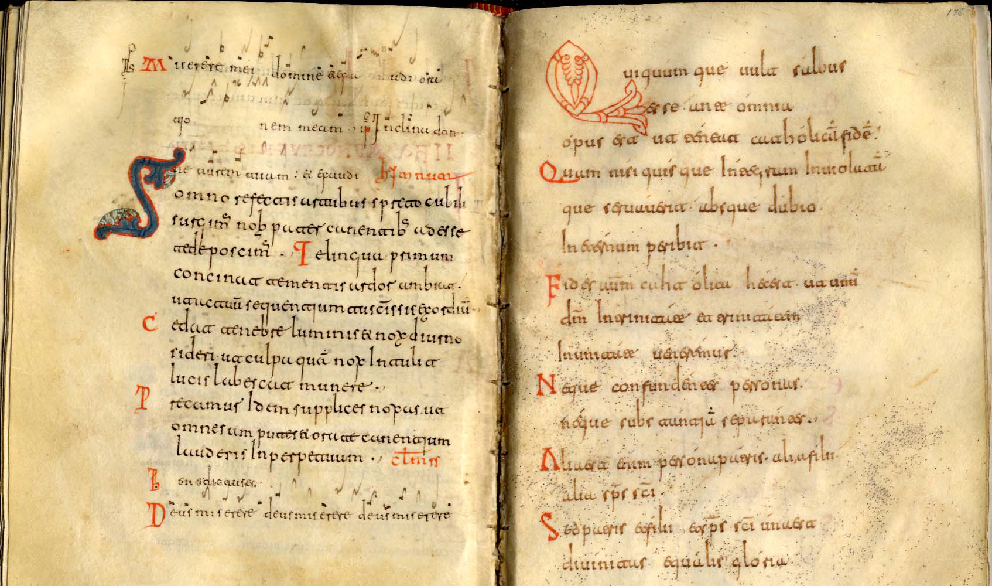 Ps Miserere mei domine & exaudi ora
tio nem meam. Inclina dom
ne aurem tuam: & exaudi
Somno refectis artubus spreto cubili
surgim nob pater canentib adesse
te deposcim. Te lingua primum
concinat te mentis ardor ambiat.
ut actuu sequentium tu sce sis exordiu
Cedat tenebre luminis & nox diurno
sideri ut culpa quā nox Intulit
lucis labescat munere.
Precamur Idem supplices noxas ut
omnes amputes & ore te canentium
lauderis Inperpetuum.
Deus miserere deus miserere deus miserere
Quiqumque uult saluus
esse ante omnia
opus est ut teneat catholicā fidē:
Quam nisi quisque Integram Inuiolatā
que seruauerit absque dubio
In eternum peribit.
Fides autm catholica hec est. ut unū
dm In trinitate et trinitatem
In unitate ueneremur.
Neque confundentes personas.
neque substantiā seperantes.
Alia est enim persona patris. alia filii
alia sps sci.
Sed patris et filii et sps sci una est
diuinitas equalis gloria